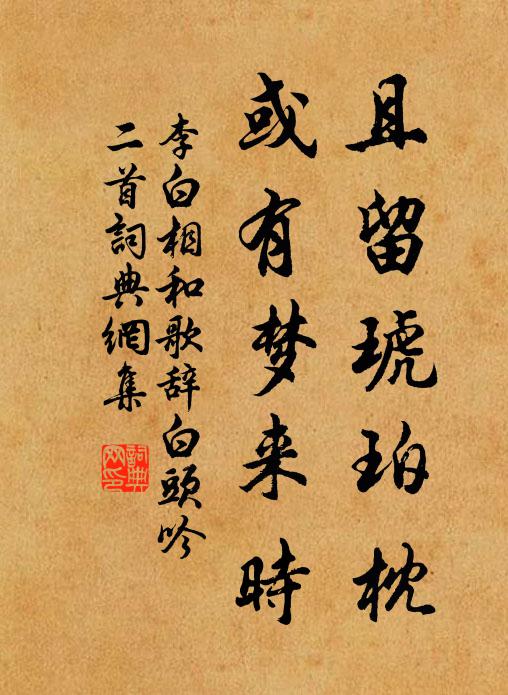 且留琥珀枕
或有梦来時
李白相和歌辞白頭吟
二首詞典網集
詞典网印